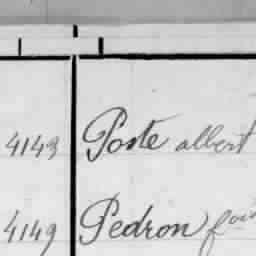 4143 Poste albert
4149 Pedron